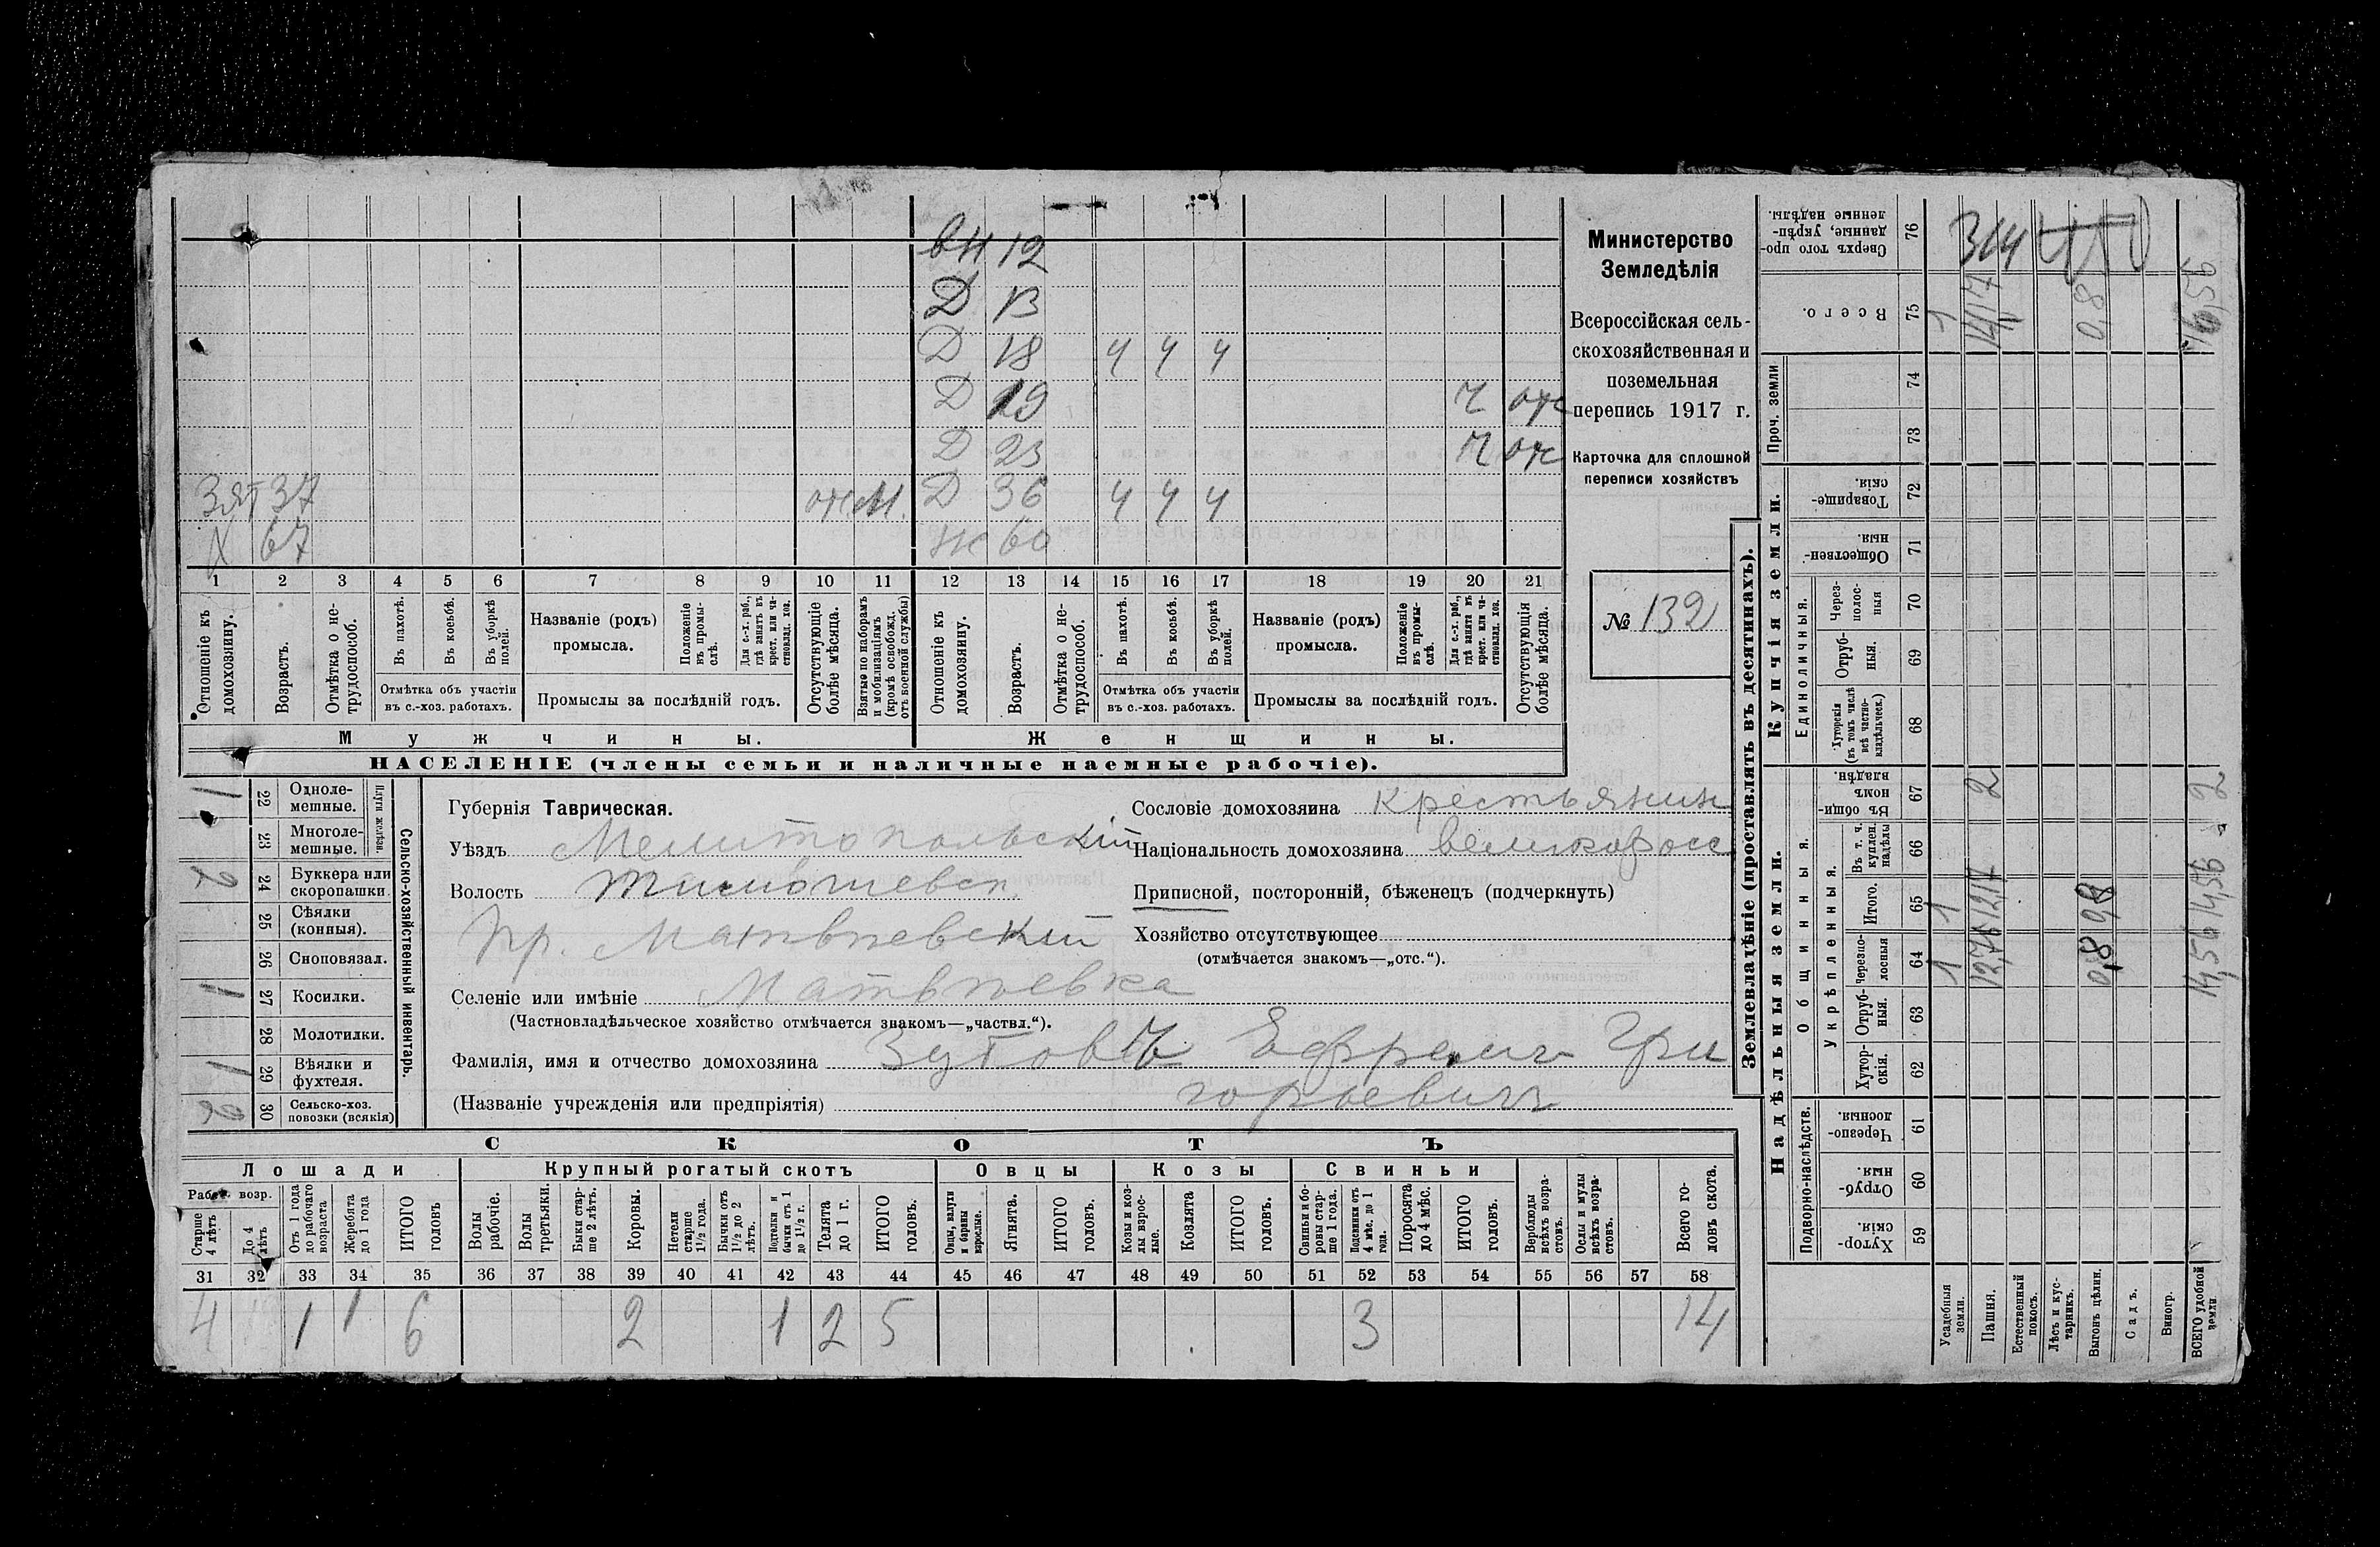 вн 12
Д 13
Д 18 ч ч ч
Д 19 ч отс
Д 23 ч отс
Зят 37 отс М. Д 36 ч ч ч
Х 67 Ж 60
1 2 3 4 5 6 7 8 9 10 11 12 13 14 15 16 17 18 19 20 21
Отношеніе къ домохозяину.
Возрастъ.
Отмѣтка о не-трудоспособ.
Въ пахотѣ.
Въ косьбѣ.
Въ уборкѣ полей.
Отмѣтка объ участіи
въ с.-хоз. работахъ.
Названіе (родъ)
промысла.
Положеніе въ промы-слѣ.
Для с.-х. раб., гдѣ занятъ въ крест. или ча-стновлад. хоз.
Промыслы за послѣдній годъ.
Отсутствующіе болѣе мѣсяца.
Взятые по наборамъ и мобилизаціямъ (кромѣ освобожд. отъ военной службы)
Отношеніе къ домохозяину.
Возрастъ.
Отмѣтка о не-трудоспособ.
Въ пахотѣ.
Въ косьбѣ.
Въ уборкѣ полей.
Отмѣтка объ участіи
въ с.-хоз. работахъ.
Названіе (родъ)
промысла.
Положеніе въ промы-слѣ.
Для с.-х. раб., гдѣ занята въ крест. или ча-стновлад. хоз.
Промыслы за послѣдній годъ.
Отсутствующія болѣе мѣсяца.
Мужчины. Женщины.
НАСЕЛЕНІЕ (члены семьи и наличные наемные рабочіе).
Министерство
Земледѣлія
Всероссійская сель-
скохозяйственная и
поземельная
перепись 1917 г.
Карточка для сплошной
переписи хозяйствъ
№ 132
1 22 Одноле-мешные.
23 Многоле-мешные.
Плуги желѣзн.
2 24 Буккера или скоропашки.
25 Сѣялки (конныя).
26 Сноповязал.
1 27 Косилки.
28 Молотилки.
1 29 Вѣялки и фухтеля.
2 30 Сельско-хоз. повозки (всякія)
Сельско-хозяйственный инвентарь.
Губернія Таврическая.
Уѣздъ Мелитопольскій
Волость Тимошевск.
пр. Матвѣевскій
Селеніе или имѣніе Матвѣевка
(Частновладѣльческое хозяйство отмѣчается знакомъ—„частвл.“).
Фамилія, имя и отчество домохозяина Зутовъ Ефремъ Гри
(Названіе учрежденія или предпріятія) горьевичъ
Сословіе домохозяина крестьянин
Національность домохозяина великоросс
Приписной, посторонній, бѣженецъ (подчеркнуть)
Хозяйство отсутствующее
(отмѣчается знакомъ—„отс.“).
СКОТЪ
Лошади Крупный рогатый скотъ Овцы Козы Свиньи
Рабоч. возр.
Старше 4 лѣтъ
До 4 лѣтъ
Отъ 1 года до рабочаго возраста
Жеребята до 1 года
ИТОГО головъ
Волы рабочіе.
Волы третьяки.
Быки стар-ше 2 лѣтъ.
Коровы.
Нетели старше 1½ года.
Бычки отъ 1½ до 2 лѣтъ.
Подтелки и бычки отъ 1 до 1½ г.
Телята до 1 г.
ИТОГО головъ.
Овцы, валухи и бараны взрослые.
Ягнята.
ИТОГО головъ.
Козы и коз-лы взрос-лые.
Козлята
ИТОГО головъ.
Свиньи и бо-ровы стар-ше 1 года.
Подсвинки отъ 4 мѣс. до 1 года.
Поросята до 4 мѣс.
ИТОГО головъ.
Верблюды всѣхъ возра-стовъ.
Ослы и мулы всѣхъ возра-стовъ.
Всего го-ловъ скота.
31 32 33 34 35 36 37 38 39 40 41 42 43 44 45 46 47 48 49 50 51 52 53 54 55 56 57 58
4 1 1 6 2 1 2 5 3 14
Землевладѣніе (проставлять въ десятинахъ).
Купчія земли.
Надѣльныя земли.
Проч. земли
Единоличныя.
Общинныя.
Укрѣпленныя.
Подворно-наслѣдств.
Сверхъ того про-данные, укрѣп-ленные надѣлы. 76 3/4
Всего. 75 1 14,17 0,8 16,56
74
73
Товарище-скія. 72
Обществен-ныя 71
Через-полос-ныя 70
Отруб-ныя. 69
Хуторскія (въ томъ числѣ всѣ частно-владѣльческ.) 68
Въ общин-номъ владѣн. 67 2 2
Въ т. ч. куплен. надѣлы 66
Итого. 65 1 12,17 0,8 14,56
Черезпо-лосныя 64 1 12,76 0,8 14,56
Отруб-ныя. 63
Хутор-скія. 62
Черезпо-лосныя. 61
Отруб-ныя. 60
Хутор-скія. 59
Усадебныя земли.
Пашня.
Естественный покосъ.
Лѣсъ и кус-тарникъ.
Выгонъ цѣлин.
Садъ.
Виногр.
ВСЕГО удобной земли.